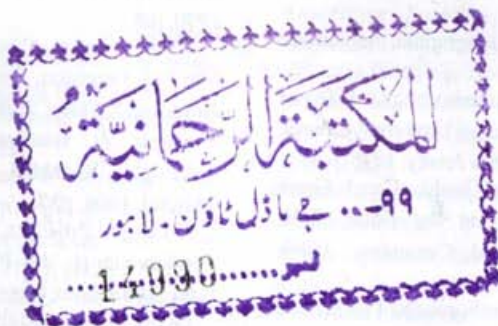 المكتبة الرحمانية
۹۹... جے ماڈل ٹاؤن۔ لاہور
نمبر....14990....